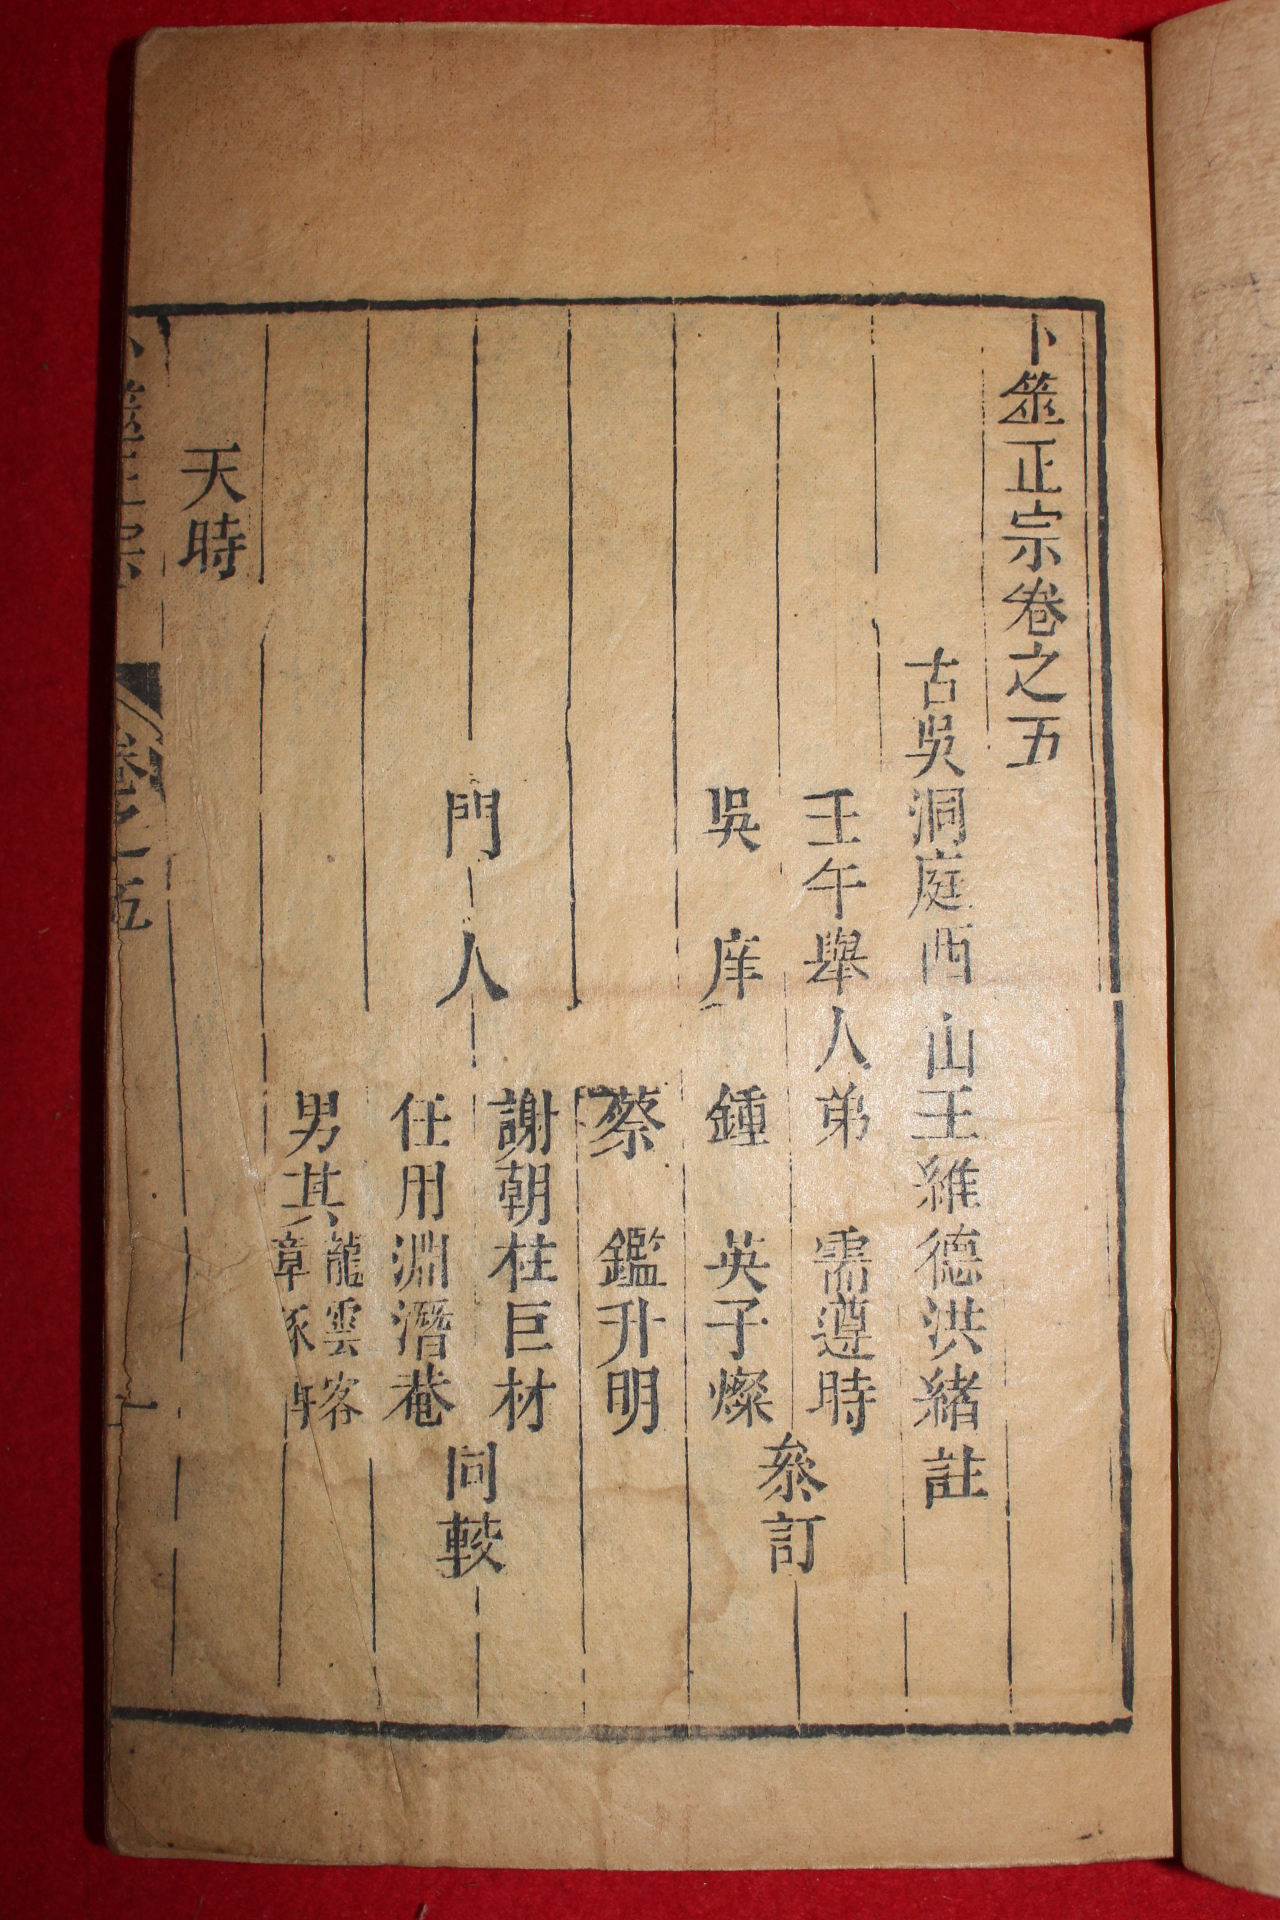 卜筮正宗卷之五
古吳洞庭西山王維德洪緒註
壬午舉人弟 需遵時
參訂
吳庠 鍾 英子燦
蔡 鑑升明
門人 謝朝柱巨材
同較
任用淵潛菴
男其龍雲客
章琢
天時
卜筮正宗
卷之五
一